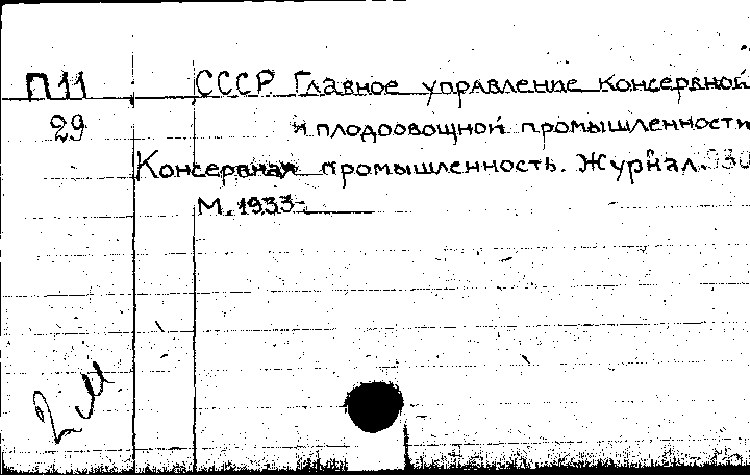 П11 СССР Главное управление консервной
29 и плодоовощной промышленности
Консервная промышленность. Журнал.
М. 1933-